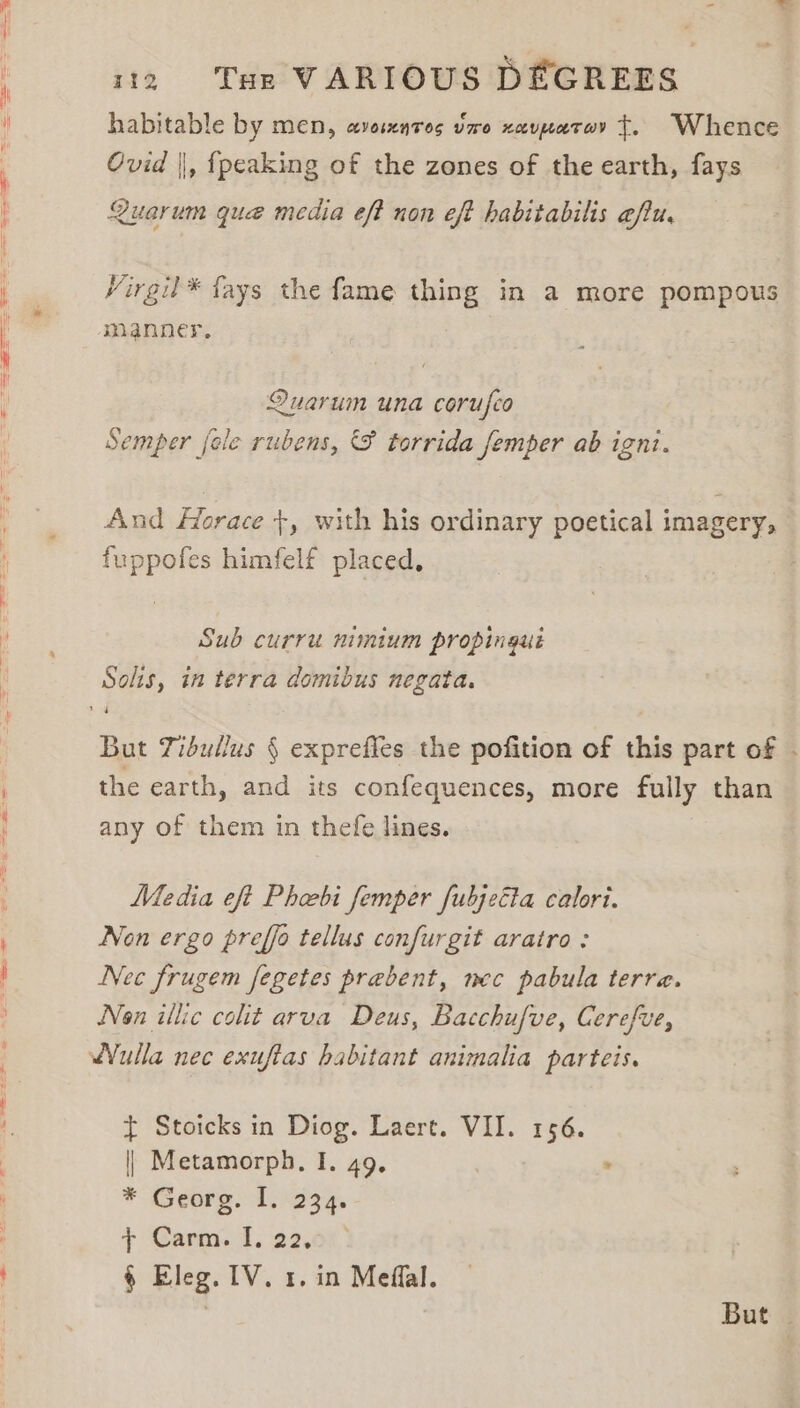 112 THE VARIOUS DEGREES
habitable by men, ανοικητος ὑπο καυματων ‡. Whence
Ovid ||, ſpeaking of the zones of the earth, ſays
Quarum quæ media eſt non eſt habitabilis æſtu.
Virgil * ſays the ſame thing in a more pompous
manner.
Quarum una coruſco
Semper ſole rubens, & torrida ſemper ab igni.
And Horace †, with his ordinary poetical imagery,
ſuppoſes himſelf placed,
Sub curru nimium propinqui
Solis, in terra domibus negata.
But Tibullus § expreſſes the poſition of this part of
the earth, and its conſequences, more fully than
any of them in theſe lines.
Media eſt Phœbi ſemper ſubjecta calori.
Non ergo preſſo tellus conſurgit aratro :
Nec frugem ſegetes præbent, nec pabula terræ.
Non illic colit arva Deus, Bacchuſve, Cereſve,
Nulla nec exuſtas habitant animalia parteis.
‡ Stoicks in Diog. Laert. VII. 156.
|| Metamorph. I. 49.
* Georg. I. 234.
† Carm. I. 22.
§ Eleg. IV. 1. in Meſſal.
But